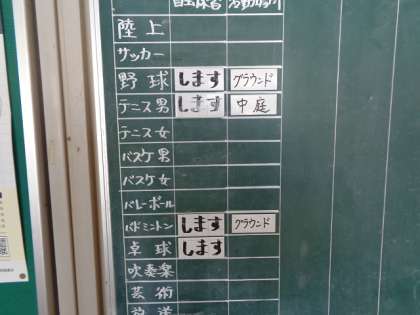 陸上
サッカー
野球 します グラウンド
テニス男 します 中庭
テニス女
バスケ男
バスケ女
バレーボール
バドミントン します グラウンド
卓球 します
吹奏楽
芸術
放送